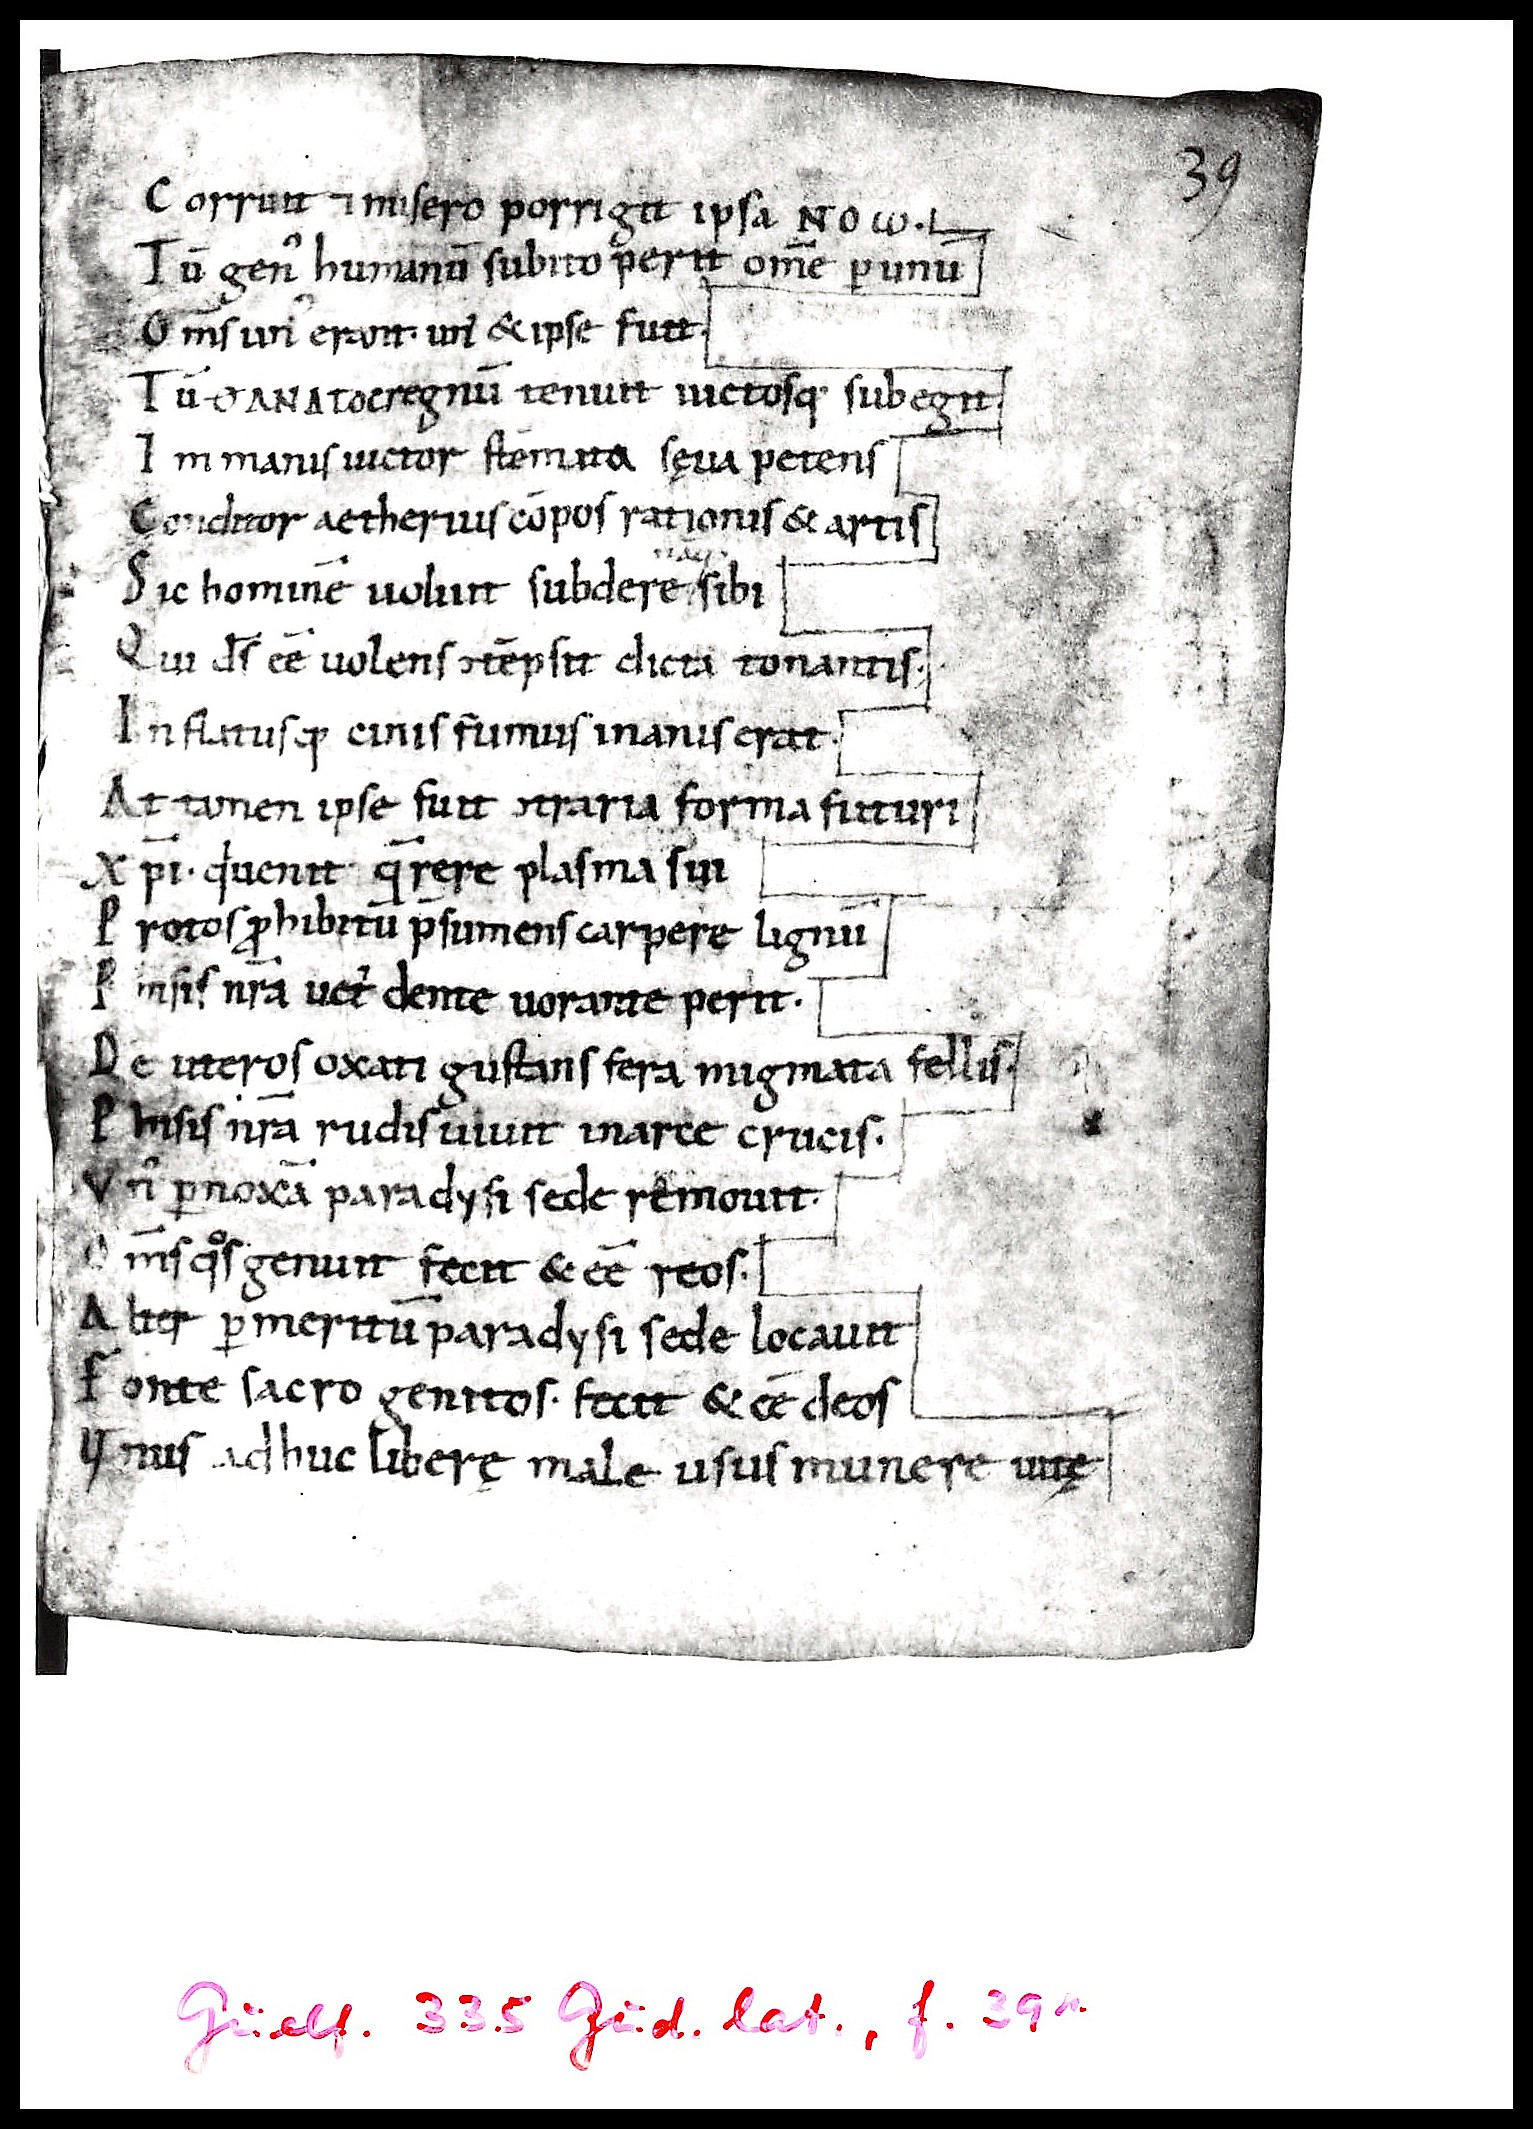 39
Corruit ⁊ misero porrigit ipsa NOω.
Tū genꝰ humanū subito perit om̅e ꝑ unū
Om̅s uni erant. uni & ipse fuit.
Tū ΘANATOC regnū tenuit uictosq; subegit.
Immanis uictor stēmata sęua petens
Conditor aetherius cōpos rationis & artis
Sic hominē uoluit subdere sibi
Qui d̅s ee̅ uolens ɔtēpsit dicta tonantis.
Inflatusq; cinis fumus inanis erat.
At tamen ipse fuit ɔtraria forma futuri
Xp̅i. q uenit q̅rere plasma sui
Protos ꝓhibitū p̅sumens carpere lignū
Phisis nr̅a uet dente uorante perit.
Deuteros oxati gustans fera migmata fellis.
Phisis nr̅a rudis uiuit in arce crucis.
Vnꝰ ꝑ noxā paradysi sede remouit.
Om̅s qͦs genuit fecit & ee̅ reos.
Alter ꝑ meritū paradysi sede locauit
Fonte sacro genitos. fecit & ee̅ deos
Vnus adhuc liberę male usus munere uitę
Guelf. 335 Gud. lat., f. 39r